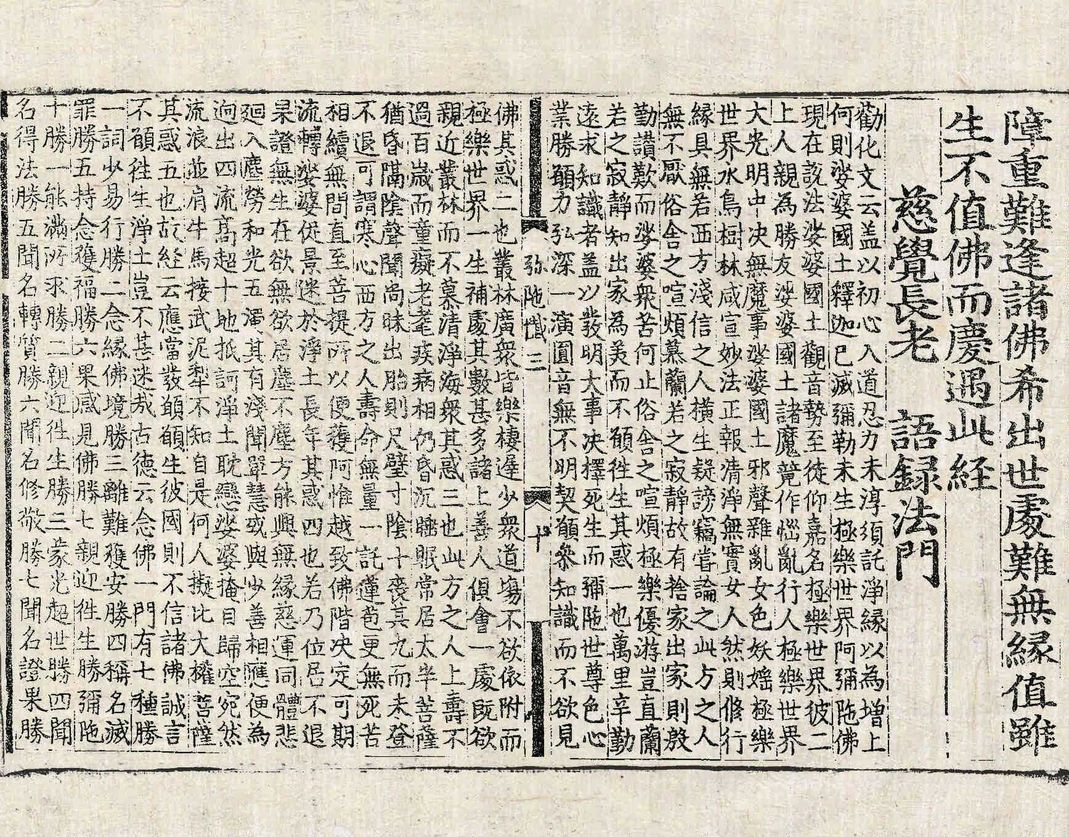 障重難逢諸佛希出世處難無緣值雖
生不值佛而慶遇此経
慈覺長老　語録法門
勸化文云盖以初心入道忍力未淳須託淨緣以為增上
何則娑婆國土釋迦已滅彌勒未生極樂世界阿彌陁佛
現在說法娑婆國土觀音勢至徒仰嘉名極樂世界彼二
上人親為勝友娑婆國土諸魔竟作惱亂行人極樂世界
大光明中决無魔事娑婆國土邪聲雜亂女色妖媱極樂
世界水鳥樹林咸宣妙法正報清淨無實女人然則修行
緣具無若西方淺信之人橫生疑謗竊嘗論之此方之人
無不厭俗舍之喧煩慕蘭若之寂静故有捨家出家則殷
勤讃歎而娑婆衆苦何止俗舍之喧煩極樂優游豈直蘭
若之寂静知出家為美而不願徃生其惑一也萬里辛勤
遠求知識者盖以發明大事决擇死生而彌陁世尊色心
業勝願力弘深一演圓音無不明契願叅知識而不欲見
弥陁懺三　十
佛其惑二也叢林廣衆皆樂棲遲少衆道塲不欲依附而
極樂世界一生補處其數甚多諸上善人俱會一處既欲
親近叢林而不慕清淨海衆其惑三也此方之人上壽不
過百歲而童癡老耄疾病相仍昏沉睡眠常居太半菩薩
猶昏隔陰聲聞尚昧出胎則尺璧寸陰十喪其九而未登
不退可謂寒心西方之人壽命無量一託蓮苞更無死苦
相續無間直至菩提所以便獲阿惟越致佛階决定可期
流轉娑婆促景迷於淨土長年其惑四也若乃位居不退
果證無生在欲無欲居塵不塵方能興無緣慈運同體悲
廻入塵勞和光五濁其有淺聞單慧或與少善相應便為
迥出四流高超十地抵訶淨土耽戀娑婆掩目歸空宛然
流浪並肩牛馬接武泥犁不知自是何人擬比大權菩薩
其惑五也故経云應當發願願生彼國則不信諸佛誠言
不願徃生淨土豈不甚迷哉古德云念佛一門有七種勝
一詞少易行勝二念緣佛境勝三離難獲安勝四稱名滅
罪勝五持念獲福勝六果感見佛勝七親迎徃生勝彌陁
十勝一能滿所求勝二親迎徃生勝三蒙光超世勝四聞
名得法勝五聞名轉質勝六聞名修敬勝七聞名證果勝